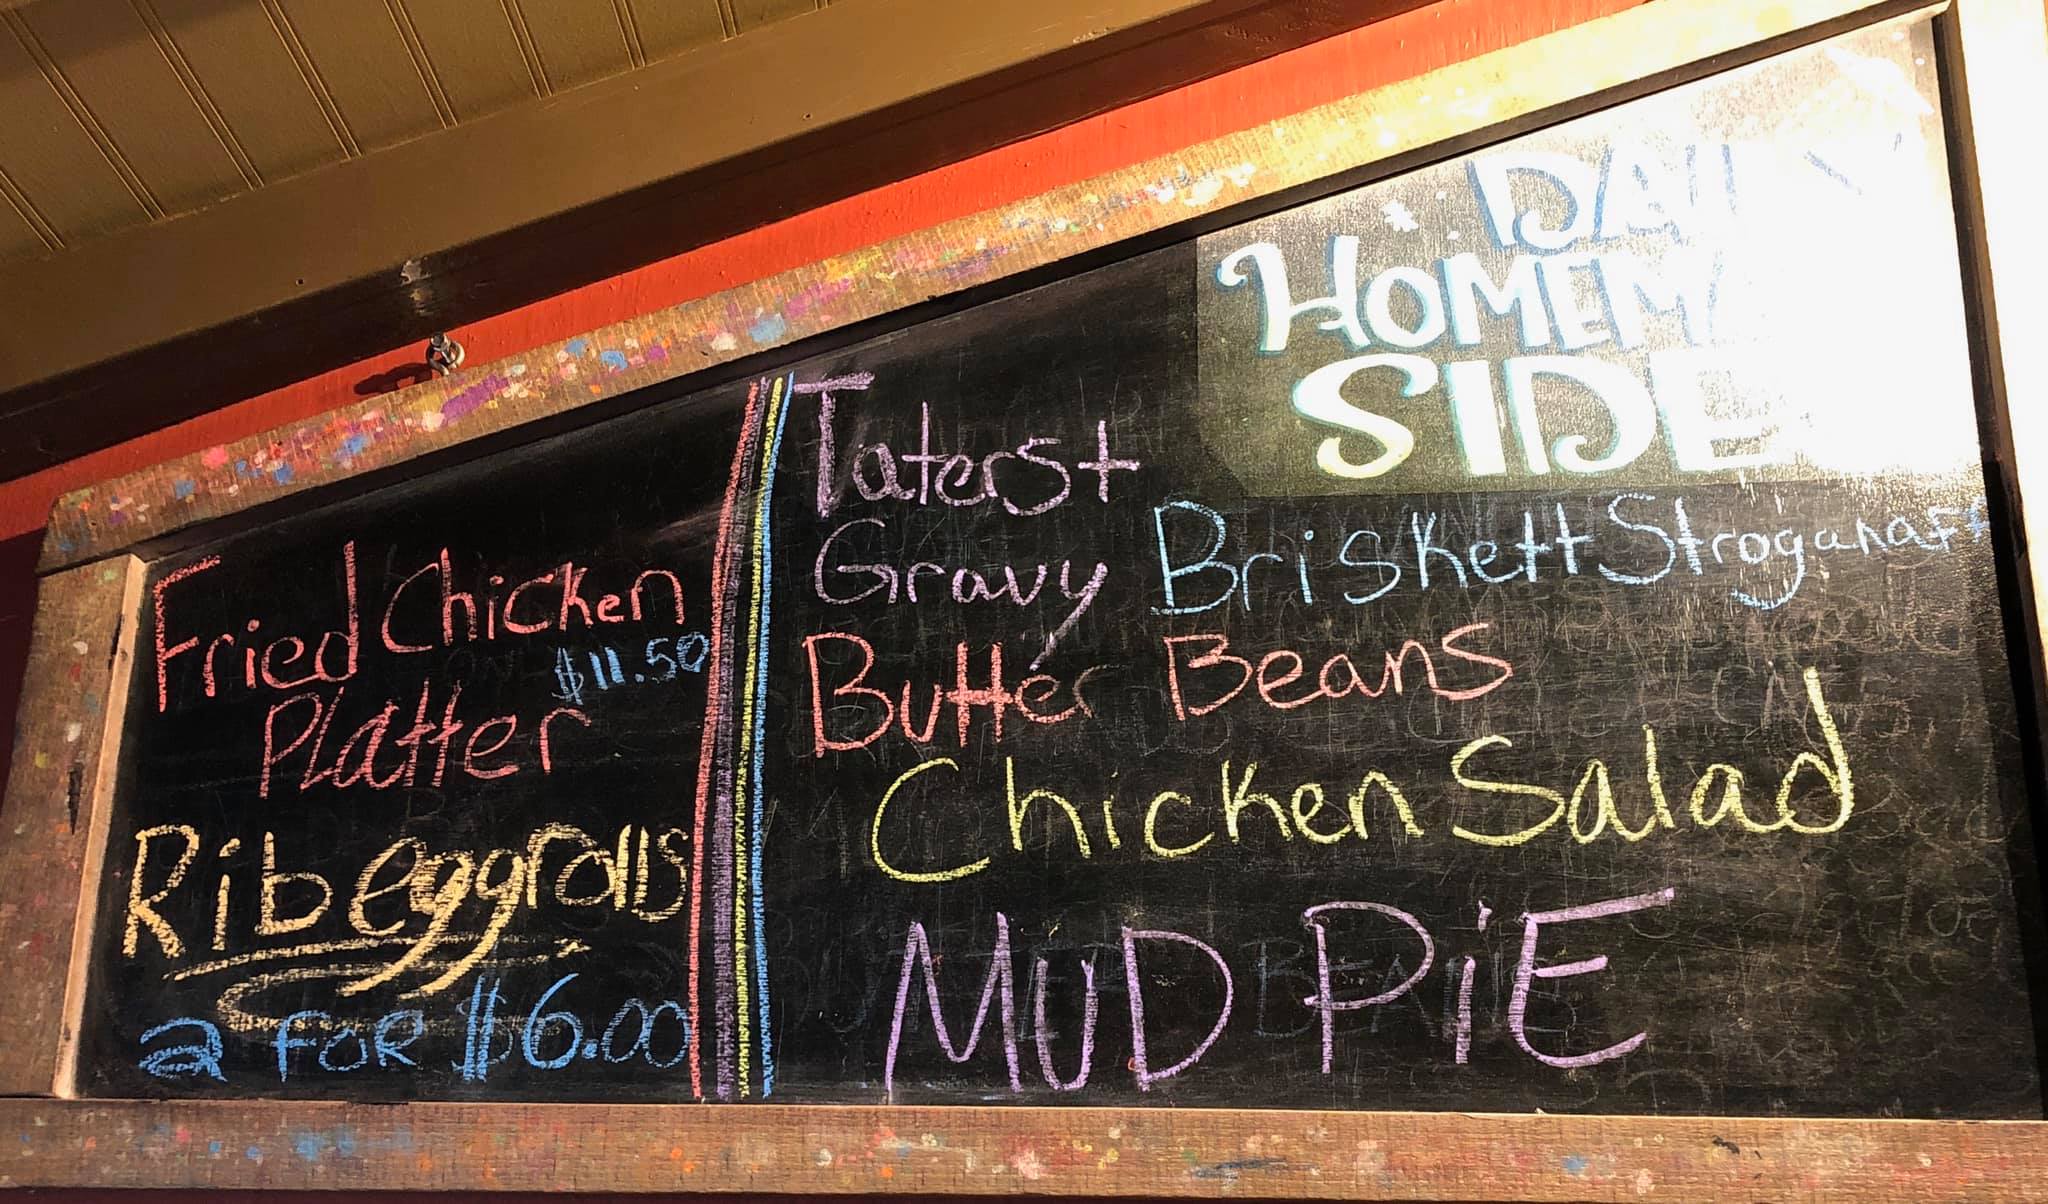 Fried Chicken
$11.50
Platter
Rib eggrolls
2 FOR $6.00
DAILY
HOMEMA
SIDE
Taters +
Gravy
Briskett Stroganaff
Butter Beans
Chicken Salad
MUD PiE